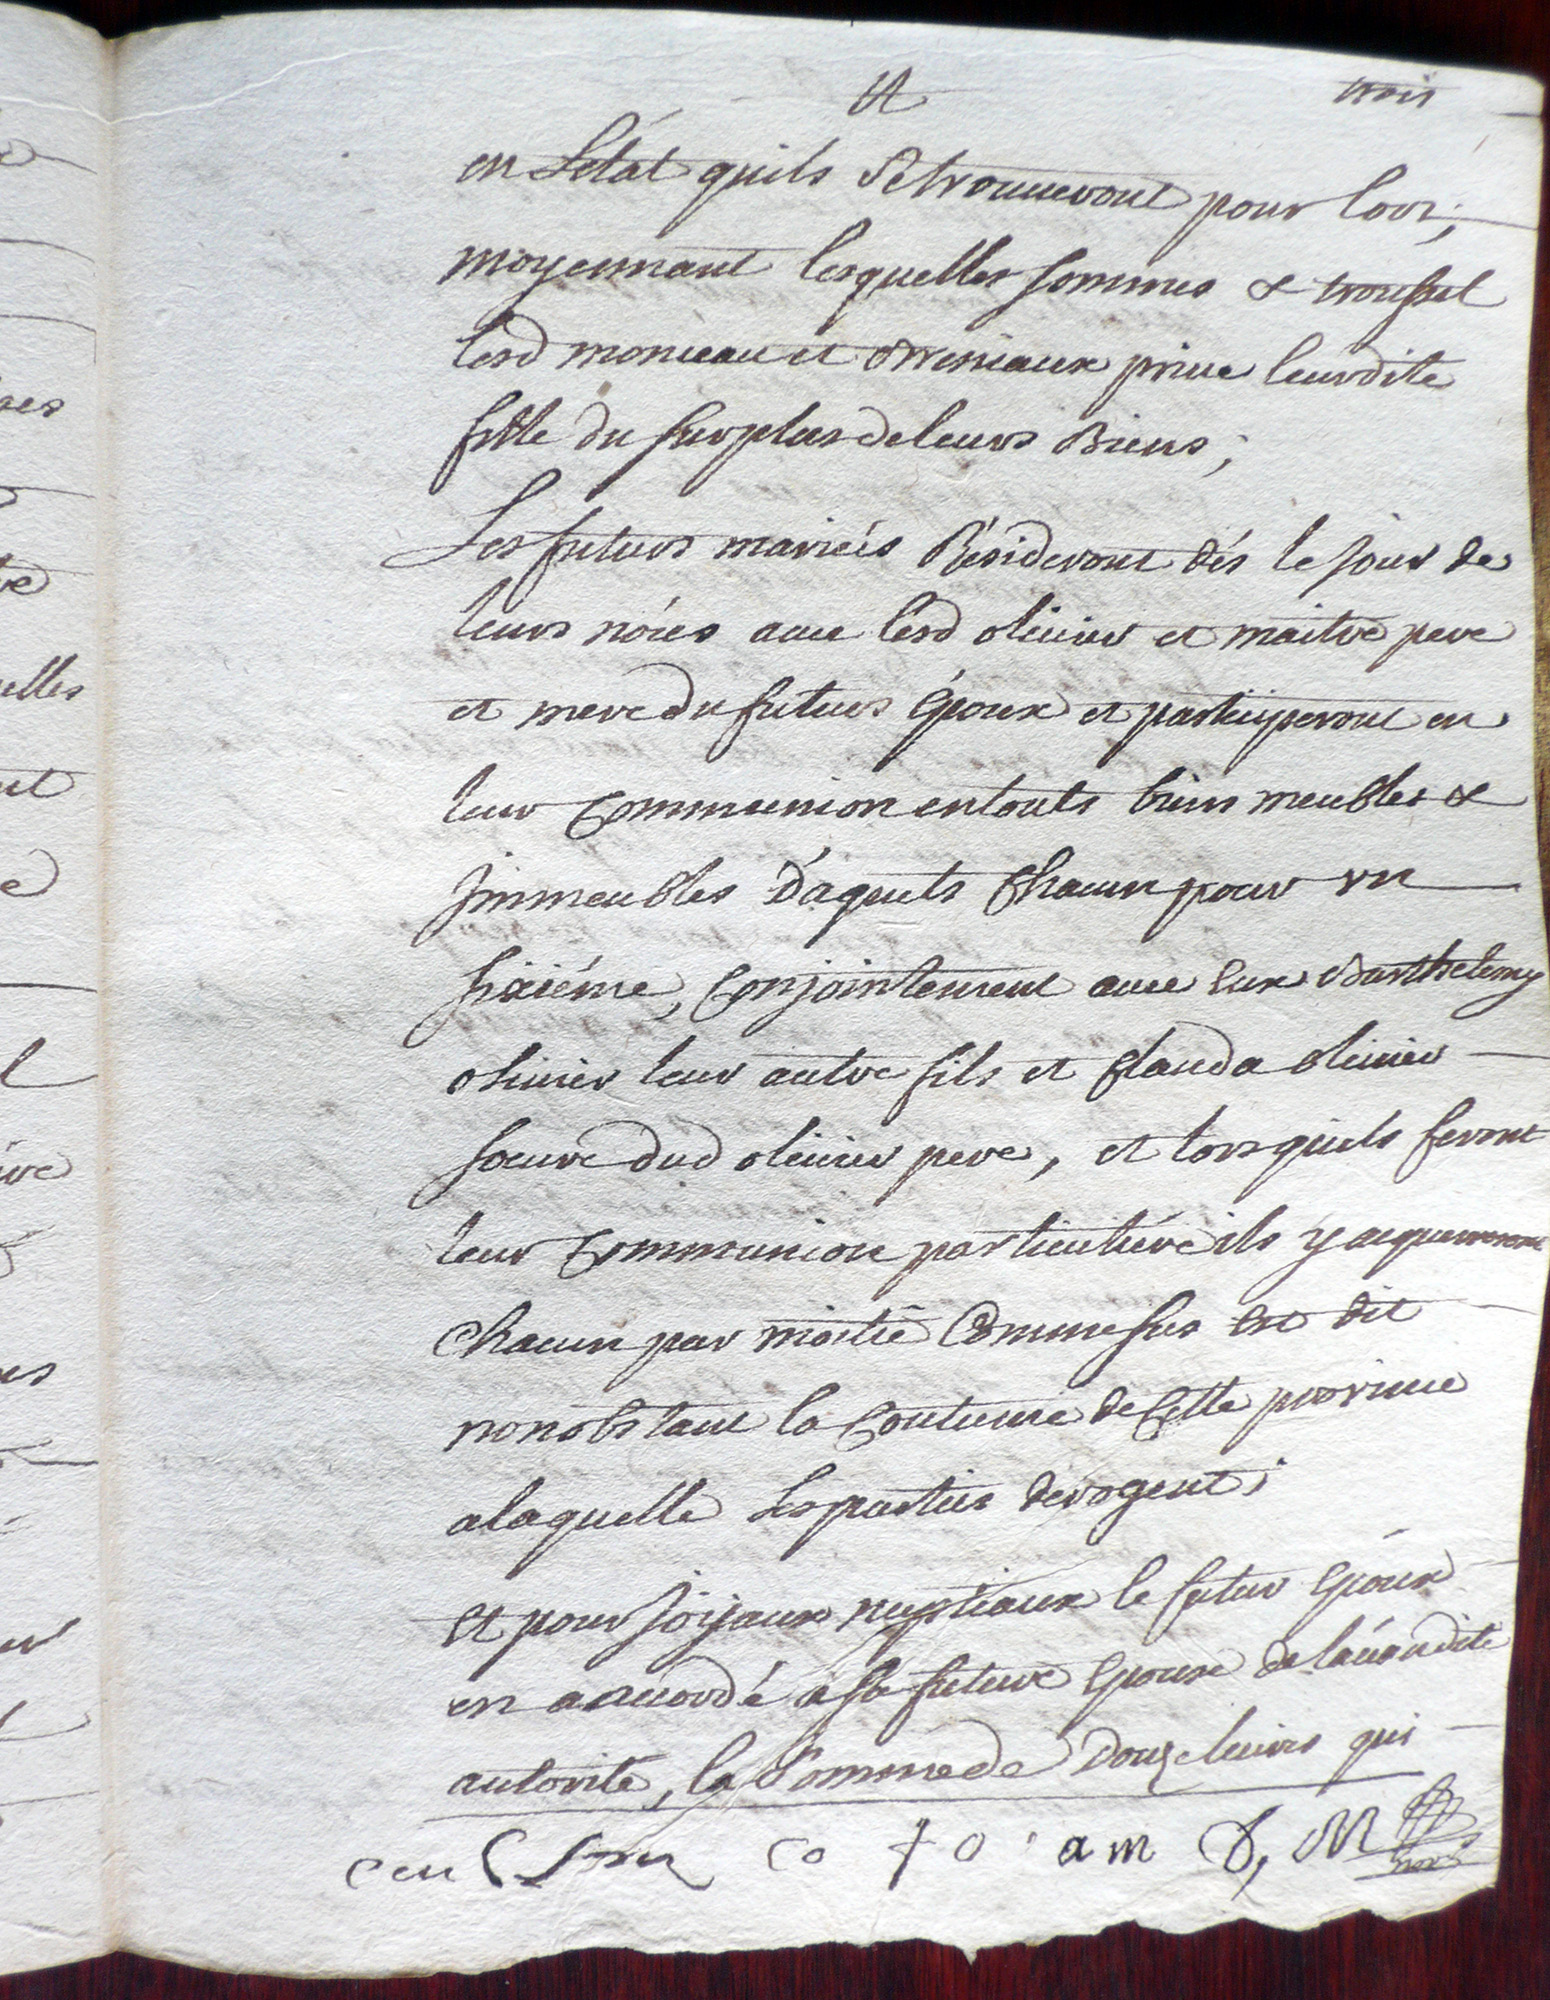 trois
en Létat quils Setrouueront pour Lors,
moyennant lesquelles sommes & troussel
lesd monceau et priue leurdite
fille du surplus deleurs Biens;
Les futurs mariés Résideront dés le Jour de
leurs nóces auec lesd oliuier et maitre pere
et mere du futurs époux et participeront en
leur Communion entouts biens meubles &
Jmmeubles d'aquets Chacun pour vn
sixiéme, Conjointement auec eux Barthelemy
oliuier leur autre fils et Clauda oliuier
soeure dud oliuier pere, et lorsquils feront
leur Communion particuliére ils y acquerreront
Chacun par moitié Comme sus est dit
nonobstant la Coutume de Cette prouince
alaquelle Les parties dérogent;
Et pour Joiyaux nuptiaux le futur époux
en a accordé a sa future épouse de laúandite
autorité, la Somme de Douze liures qui
co + o a m